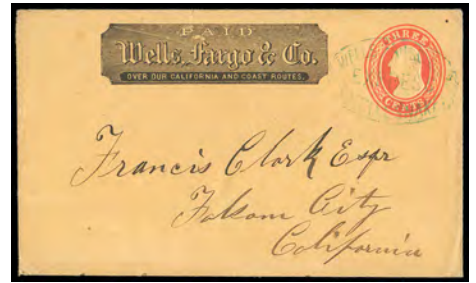 PAID
Wells, Fargo & Co.
OVER OUR CALIFORNIA AND COAST ROUTES.
THREE
CENTS
Francis Clark Esqr
Folsom City
California